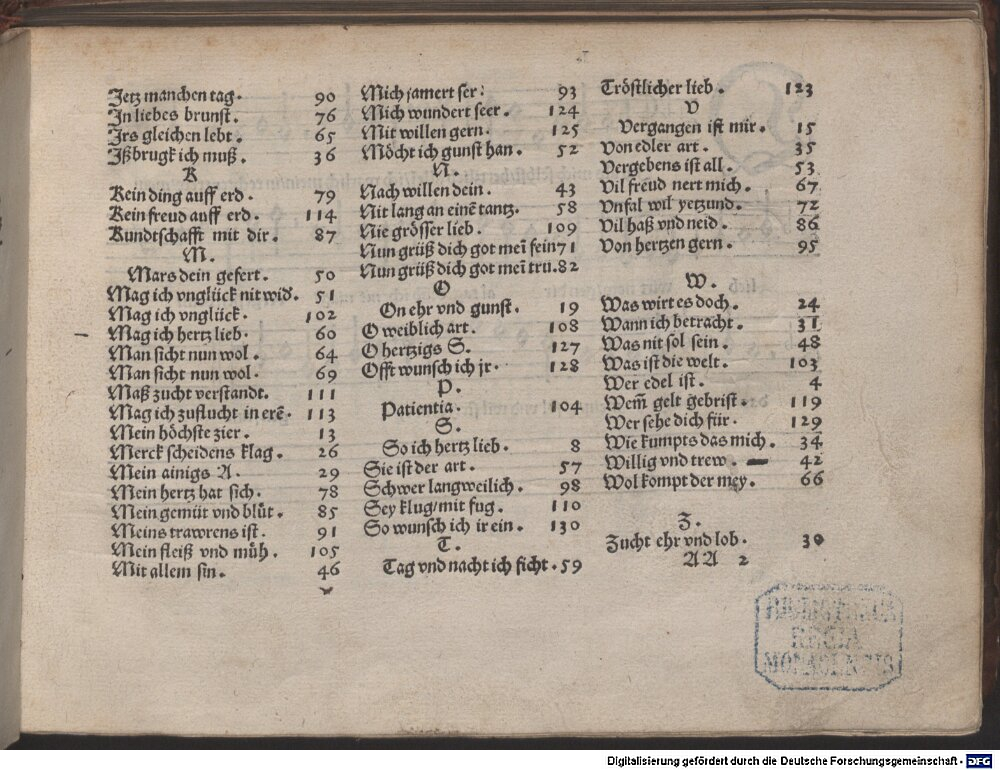 Jetz manchen tag. 90
In liebes brunst. 76
Irs gleichen lebt. 65
Jßbrugk ich muß. 36
K
Kein ding auff erd. 79
Kein freud auff erd. 114
Kundtschafft mit dir. 87
M.
Mars dein gefert. 50
Mag ich vnglück nit wid. 51
Mag ich vnglück. 102
Mag ich hertz lieb. 60
Man sicht nun wol. 64
Man sicht nun wol. 69
Maß zucht verstandt. 111
Mag ich zuflucht in erē. 113
Mein höchste zier. 13
Merck scheidens klag. 26
Mein ainigs A. 29
Mein hertz hat sich. 78
Mein gemüt vnd blůt. 85
Meins trawrens ist. 91
Mein fleiß vnd můh. 105
Mit allem sin. 46
Mich jamert ser: 93
Mich wundert seer. 124
Mit willen gern. 125
Möcht ich gunst han. 52
N.
Nach willen dein. 43
Nit lang an einē tantz. 58
Nie grösser lieb. 109
Nun grüß dich got mei̅ fein 71
Nun grüß dich got mei̅ tru. 82
O
On ehr vnd gunst. 19
O weiblich art. 108
O hertzigs S. 127
Offt wunsch ich jr. 128
P.
Patientia. 104
S.
So ich hertz lieb. 8
Sie ist der art. 57
Schwer langweilich. 98
Sey klug/mit fug. 110
So wunsch ich ir ein. 130
T.
Tag vnd nacht ich ficht. 59
Tröstlicher lieb. 123
V
Vergangen ist mir. 15
Von edler art. 35
Vergebens ist all. 53
Vil freůd nert mich. 67
Vnfal wil yetzund. 72
Vil haß vnd neid. 86
Von hertzen gern. 95
W.
Was wirt es doch. 24
Wann ich betracht. 31
Was nit sol sein. 48
Was ist die welt. 103
Wer edel ist. 4
Wem̅ gelt gebrist. 119
Wer sehe dich für. 129
Wie kumpts das mich. 34
Willig vnd trew. 42
Wol kompt der mey. 66
Z.
Zucht ehr vnd lob. 30
AA 2
BIBLIOTHECA
REGIA
MONACENSIS
Digitalisierung gefördert durch die Deutsche Forschungsgemeinschaft - DFG